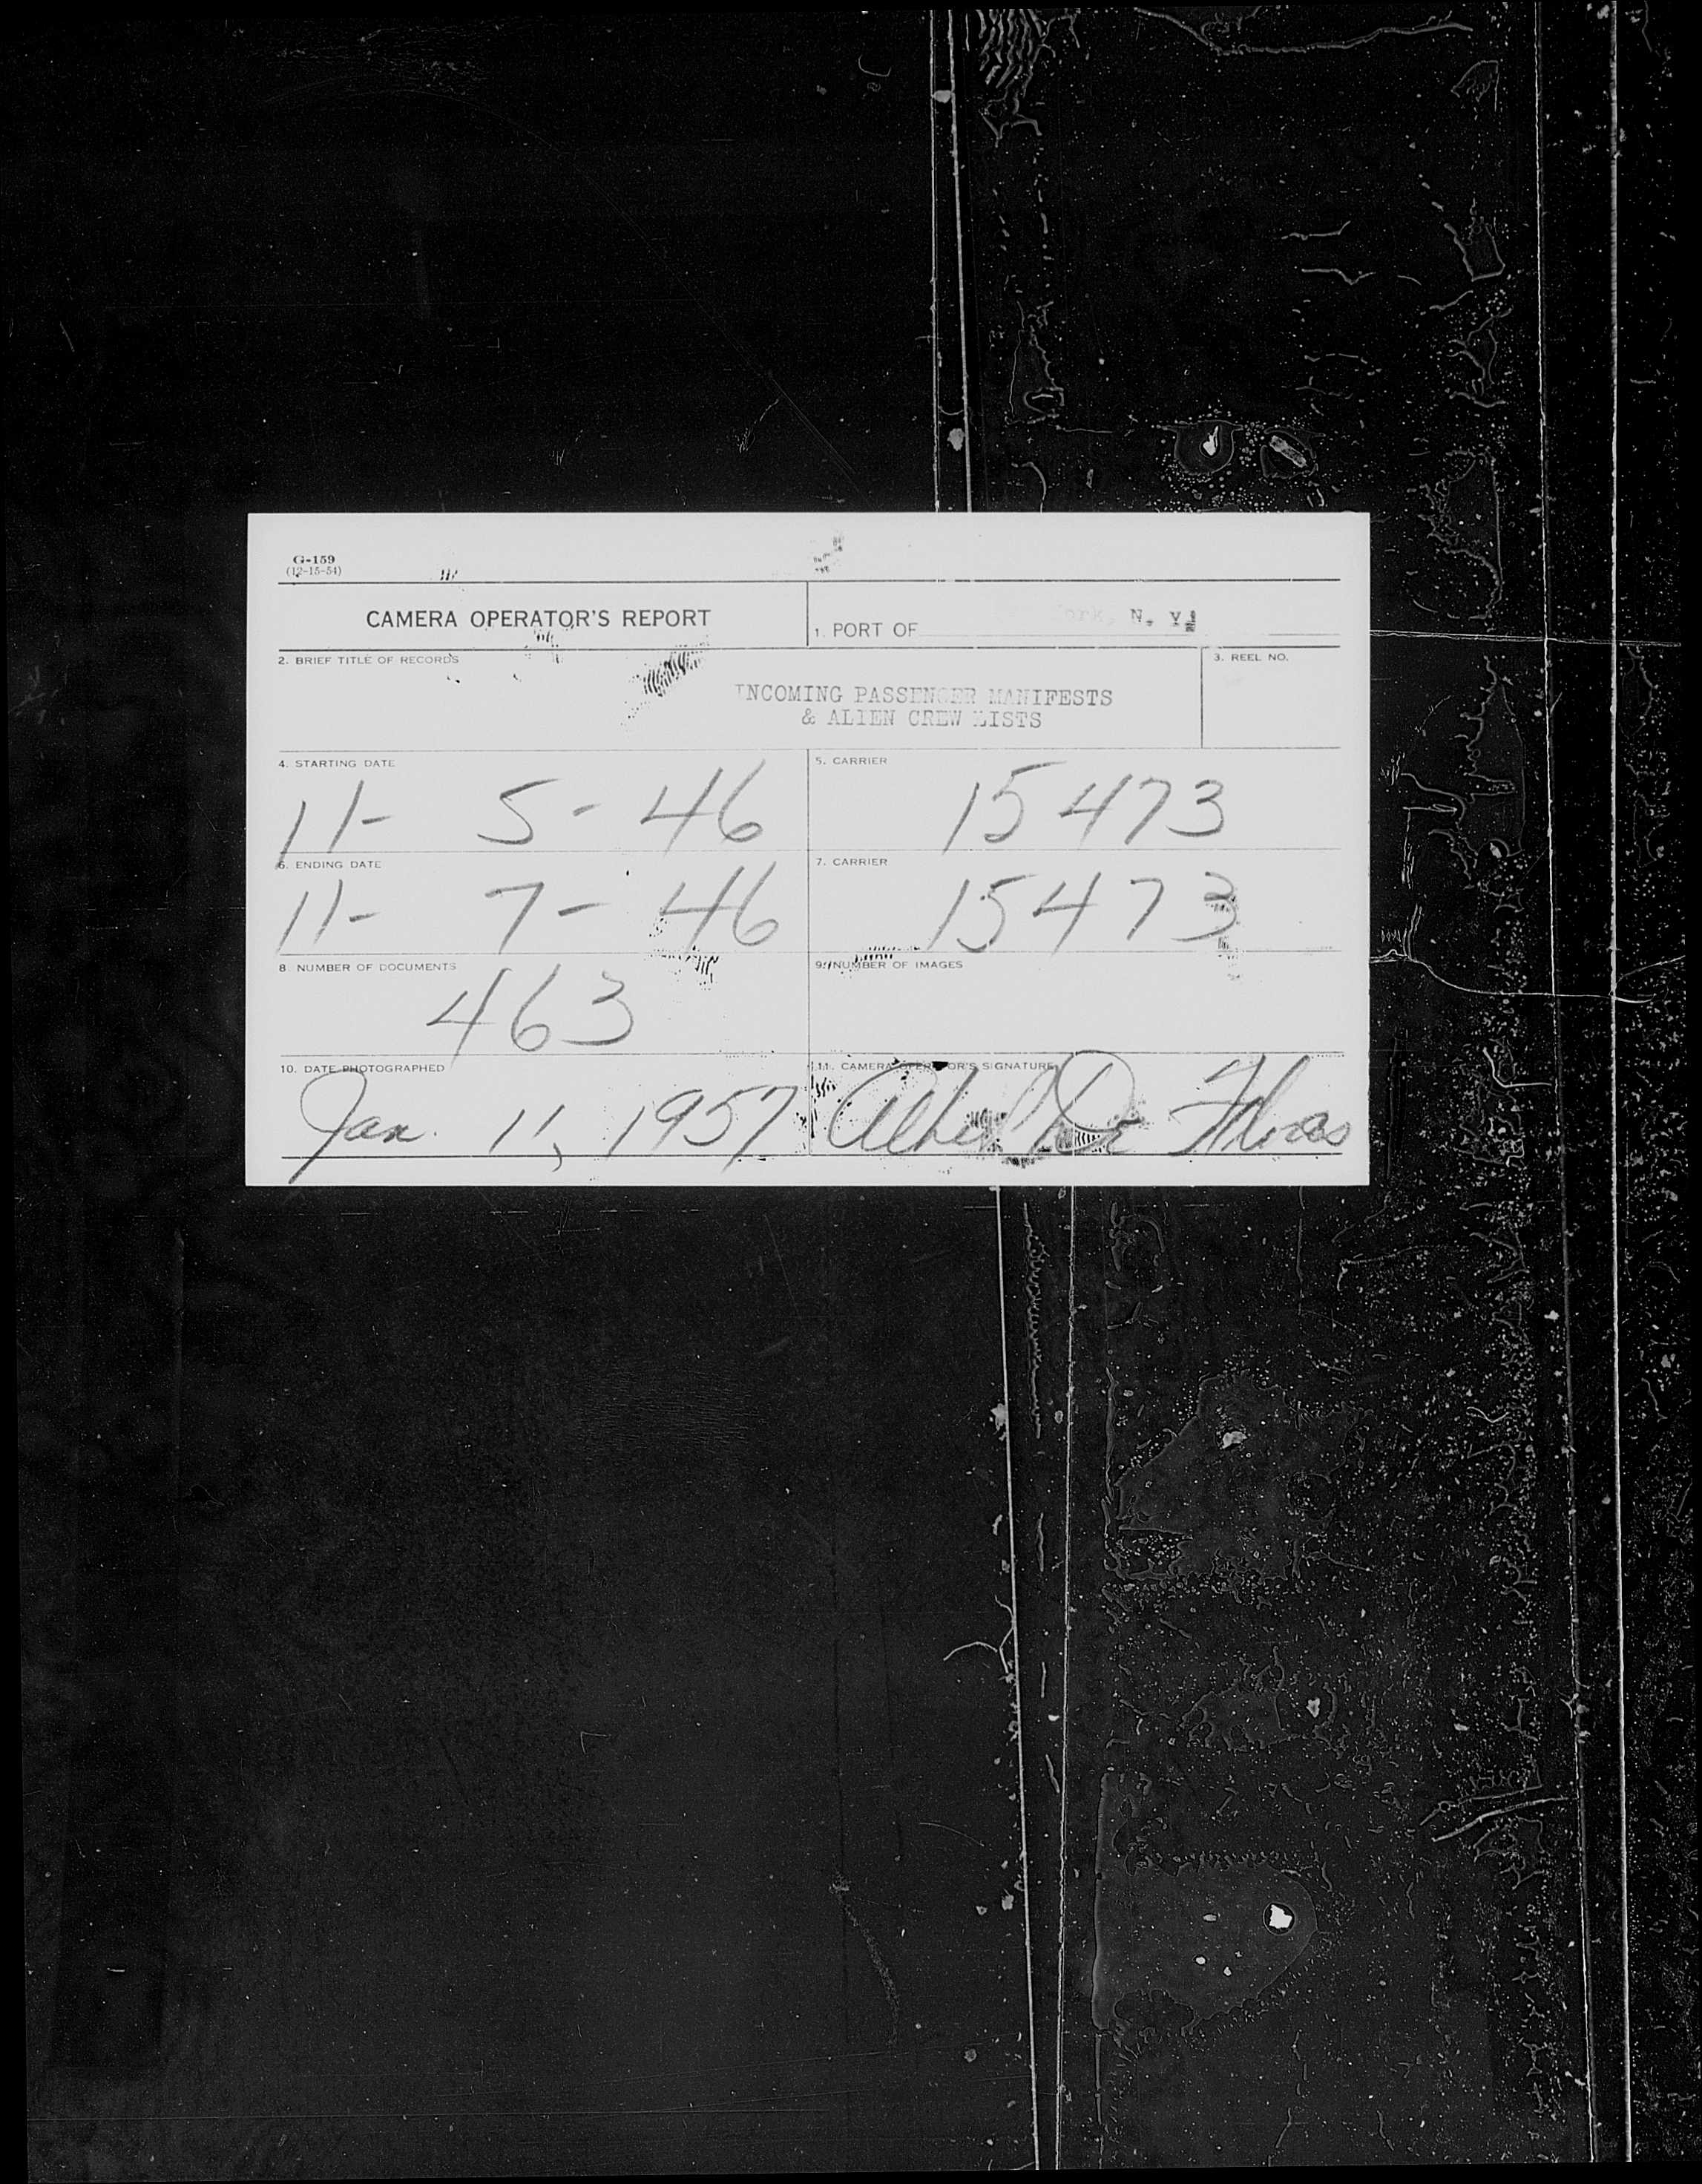 G-159
(12-15-54)
CAMERA OPERATOR'S REPORT
1. PORT OF York, N. Y.
2. BRIEF TITLE OF RECORDS
3. REEL NO.
INCOMING PASSENGER MANIFESTS
& ALIEN CREW LISTS
4. STARTING DATE
11- 5- 46
5. CARRIER
15473
6. ENDING DATE
11- 7- 46
7. CARRIER
15473
8. NUMBER OF DOCUMENTS
463
9. NUMBER OF IMAGES
10. DATE PHOTOGRAPHED
Jan. 11, 1957
11. CAMERA OPERATOR'S SIGNATURE